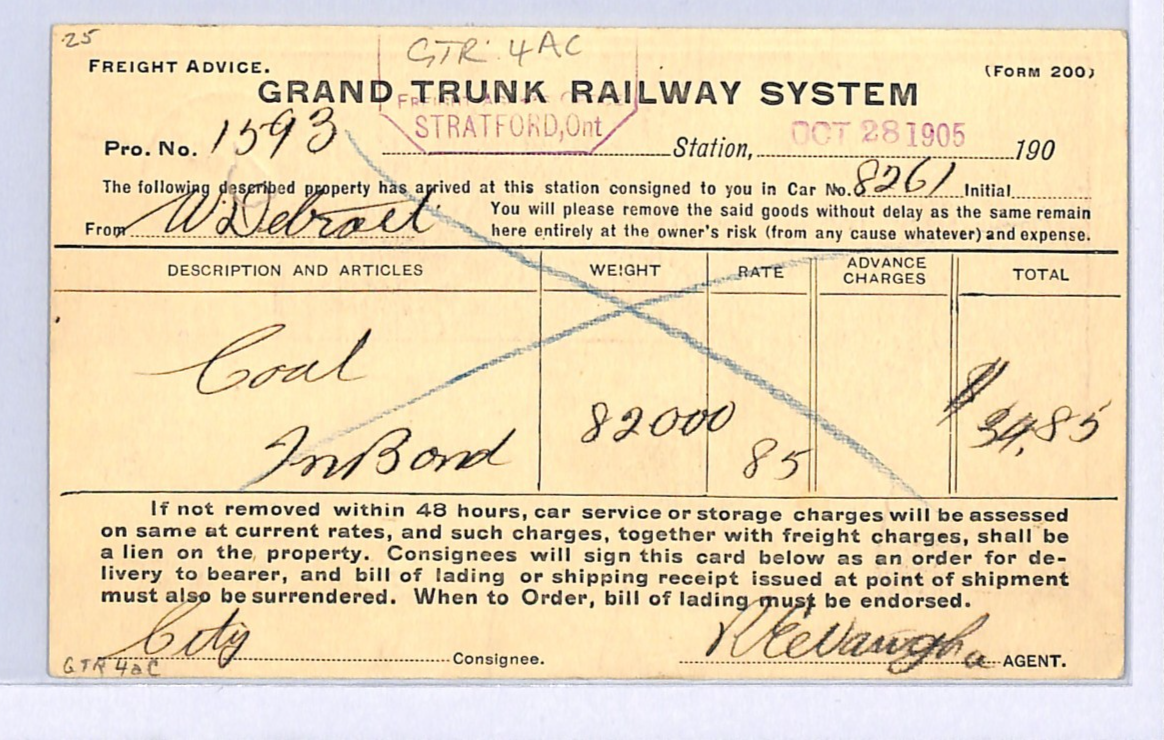 25
GTR. 4AC
FREIGHT ADVICE.
(FORM 200)
GRAND TRUNK RAILWAY SYSTEM
FREIGHT ADVICE OFFICE
STRATFORD, Ont
Pro. No. 1593 Station, OCT 28 1905 190
The following described property has arrived at this station consigned to you in Car No. 8261 Initial
From W. Detroit You will please remove the said goods without delay as the same remain
here entirely at the owner's risk (from any cause whatever) and expense.
DESCRIPTION AND ARTICLES WEIGHT RATE ADVANCE CHARGES TOTAL
Coal
In Bond 82000 85 $ 34.85
If not removed within 48 hours, car service or storage charges will be assessed
on same at current rates, and such charges, together with freight charges, shall be
a lien on the property. Consignees will sign this card below as an order for de-
livery to bearer, and bill of lading or shipping receipt issued at point of shipment
must also be surrendered. When to Order, bill of lading must be endorsed.
City Consignee. AGENT.
GTR 4aC